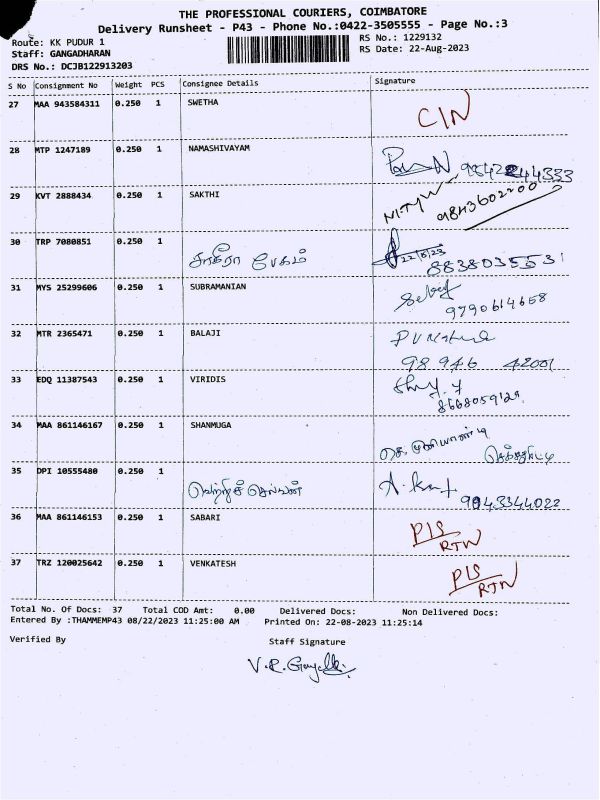 THE PROFESSIONAL COURIERS, COIMBATORE
Delivery Runsheet - P43 - Phone No.:0422-3505555 - Page No.:3
Route: KK PUDUR 1 RS No.: 1229132
Staff: GANGADHARAN RS Date: 22-Aug-2023
DRS No.: DCJB122913203
S No Consignment No Weight PCS Consignee Details Signature
27 MAA 943584311 0.250 1 SWETHA
C/N
28 MTP 1247189 0.250 1 NAMASHIVAYAM
29 KVT 2888434 0.250 1 SAKTHI
9843602200
30 TRP 7080851 0.250 1
சாகிரா பேகம் 22/8/23
8838035531
31 MYS 25299606 0.250 1 SUBRAMANIAN
9790614658
32 MTR 2365471 0.250 1 BALAJI
98 946 42001
33 EDQ 11387543 0.250 1 VIRIDIS
34 MAA 861146167 0.250 1 SHANMUGA
35 DPI 10555480 0.250 1
வெற்றிச் செல்வன்
9043344022
36 MAA 861146153 0.250 1 SABARI
PIS
RTN
37 TRZ 120025642 0.250 1 VENKATESH
PIS
RTN
Total No. Of Docs: 37 Total COD Amt: 0.00 Delivered Docs: Non Delivered Docs:
Entered By :THAMMEMP43 08/22/2023 11:25:00 AM Printed On: 22-08-2023 11:25:14
Verified By Staff Signature